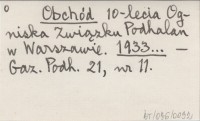 Obchód 10-lecia Og-
niska Związku Podhalan
w Warszawie. 1933... —
Gaz. Podh. 21, nr 11.